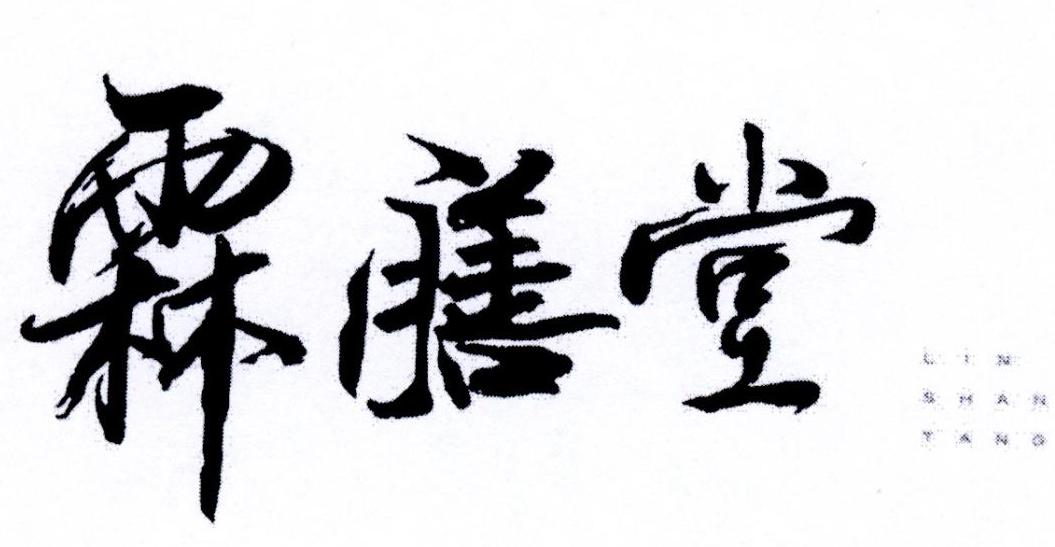 霖膳堂
LIN
SHAN
TANG